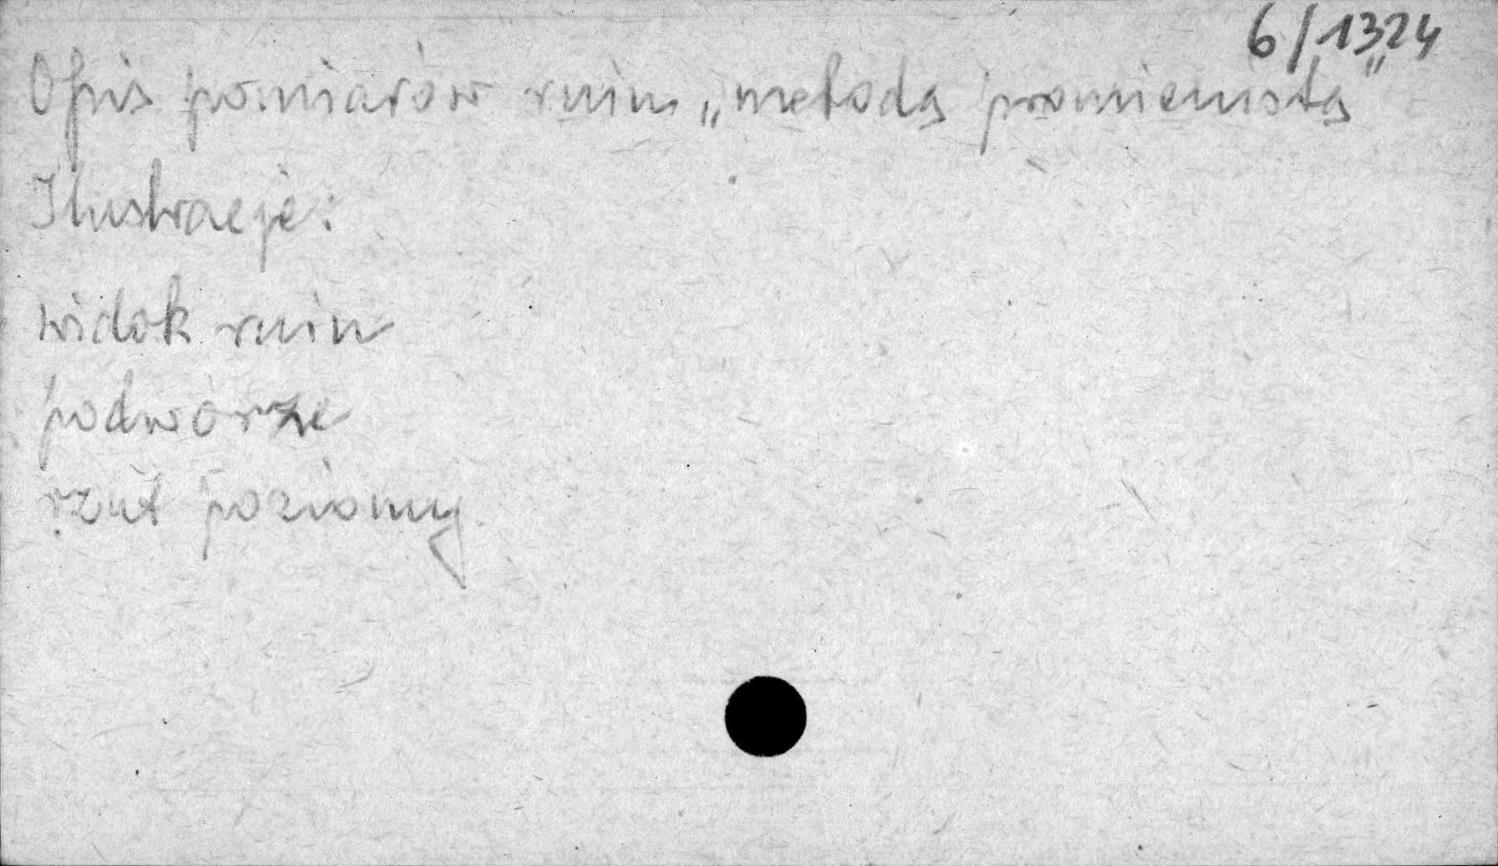 6/1324
Opis pomiarów ruin „metodą promienistą”
Ilustracje:
widok ruin
podwórze
rzut poziomy